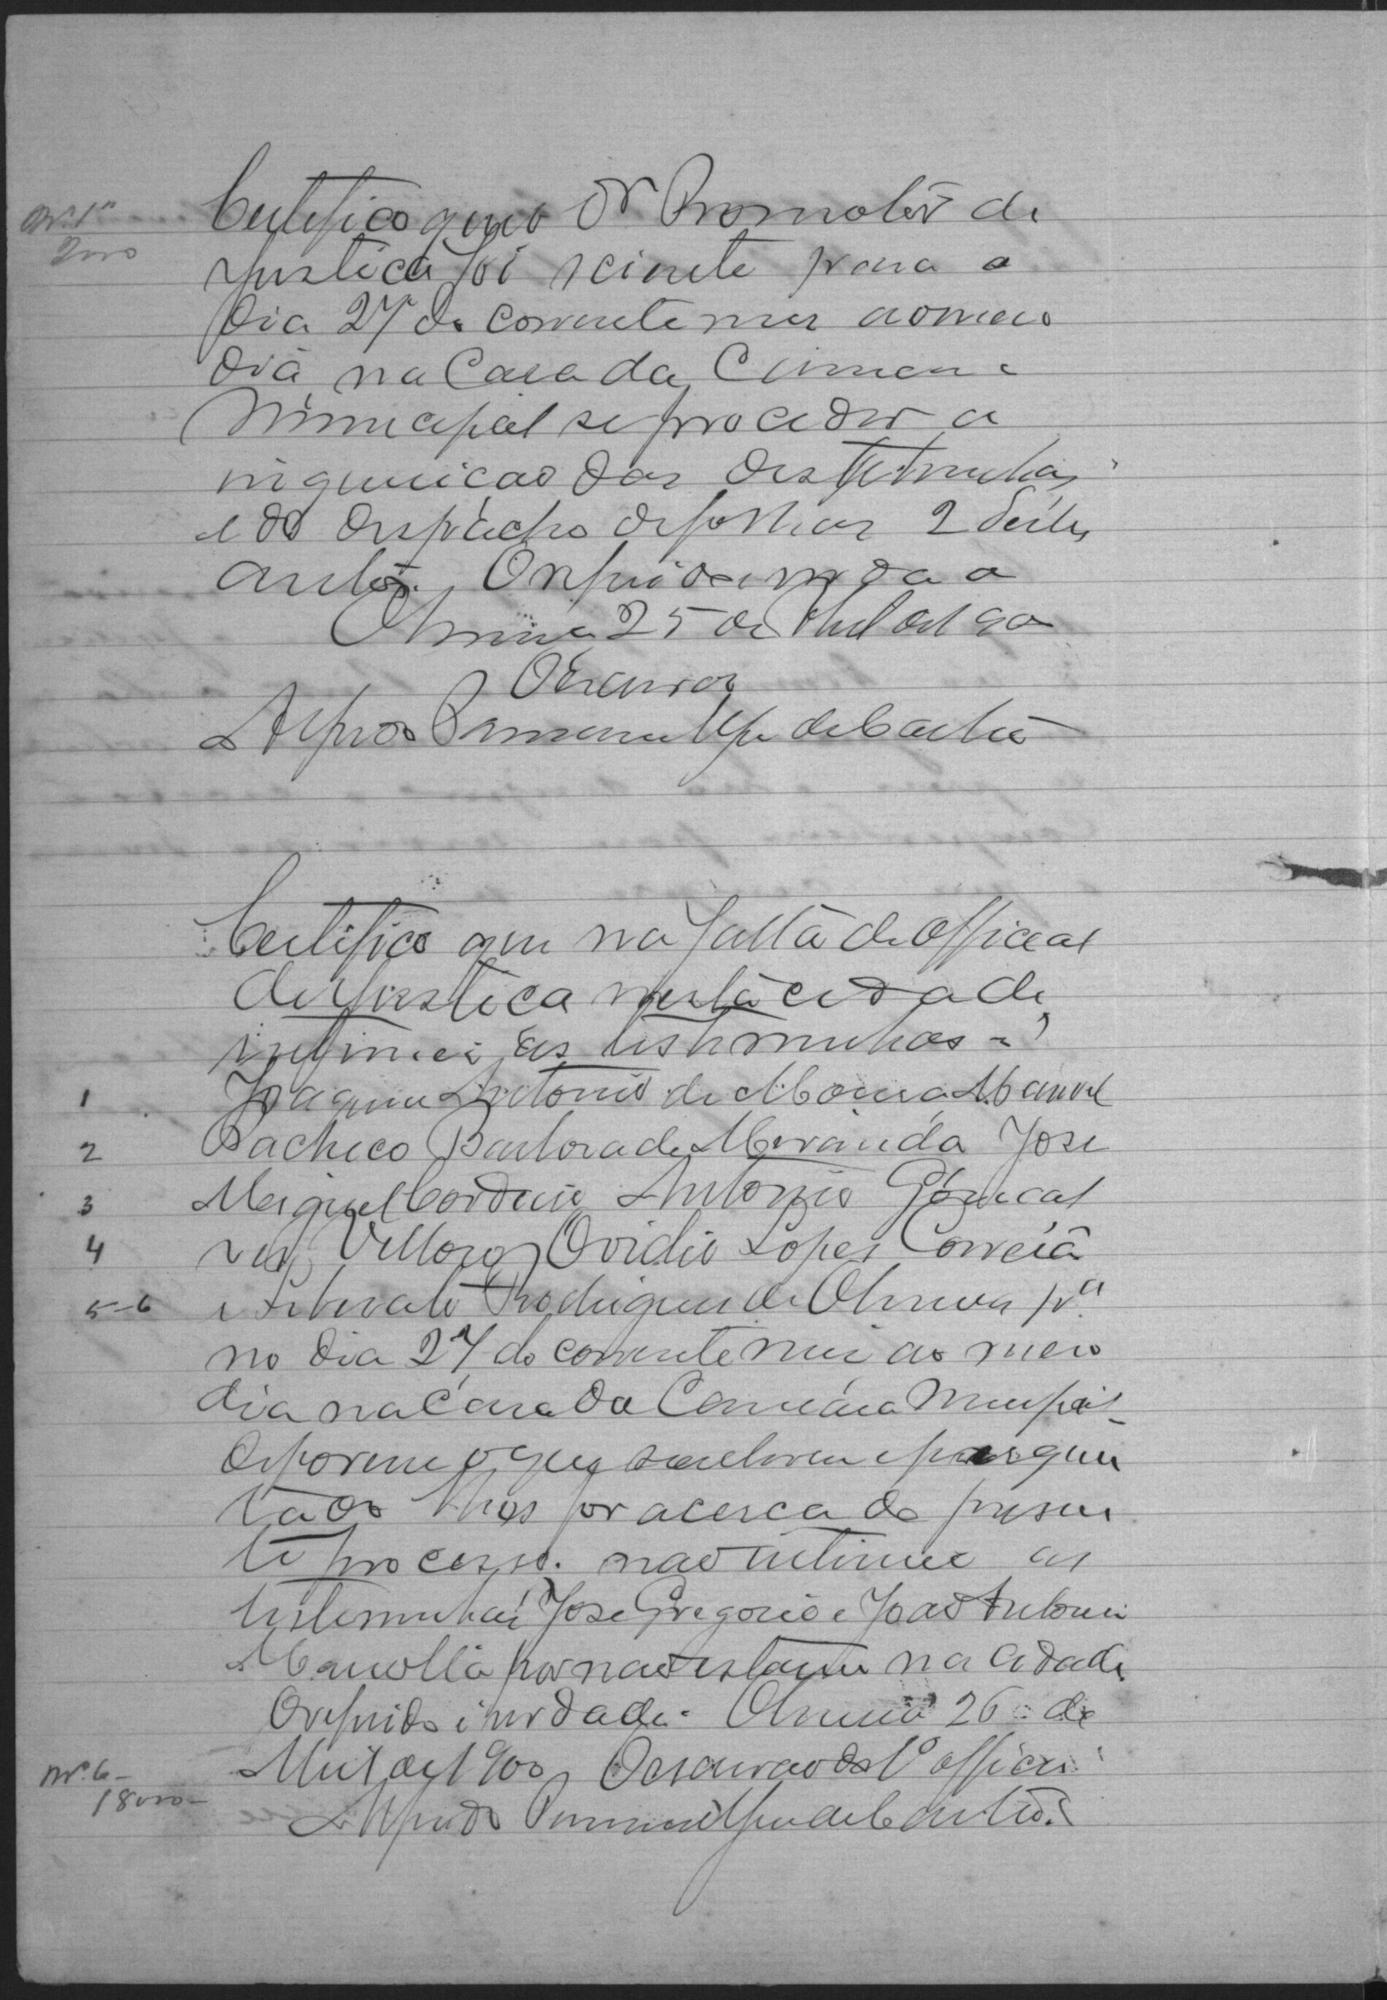 Nº 1"
2000
Certifico que o Dr Promotor de
Justica foi sciente para o
dia 27 do corrente mez ao meio
dia na Casa da Camara
Municipal se proceder a
inquiricao das testemunhas
e do despacho de folhas 2 destes
autos. O referido é verdade
25 de Abril de 190
O Escrivão
Alfredo de Castro
Certifico que na falta de official
de Justica nesta cidade,
intimei as testemunhas -
1 Joaquim Antonio de Moura, Manoel
2 Pacheco Barbosa de Miranda Jose
3 Miguel Cordeiro Antonio Goncal
4 ves Velloso Ovidio Lopes Correia
5-6 e Liberato Rodrigues de Oliveira pª
no dia 27 do corrente mez ao meio
dia na Casa da Camara Municipal
deporem o que souberem e pergun
tado lhes for acerca do presen
te processo. nao intimei as
testemunhas Jose Gregorio e Joao Antonio
por nao estarem na cidade
O referido é verdade. 26 de
Abril de 1900 O escrivao do 1º officio
Nº 6-
18000-
Alfredo de Castro.